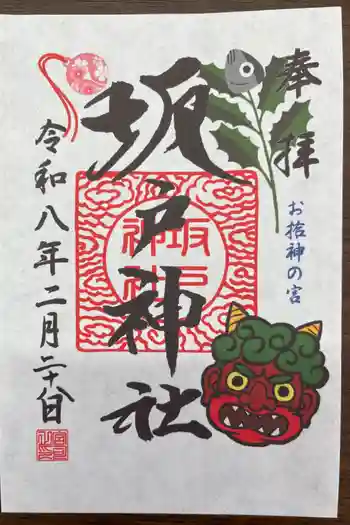 奉拝
お捨神の宮
坂戸神社
坂戸
神社
令和八年二月二十日